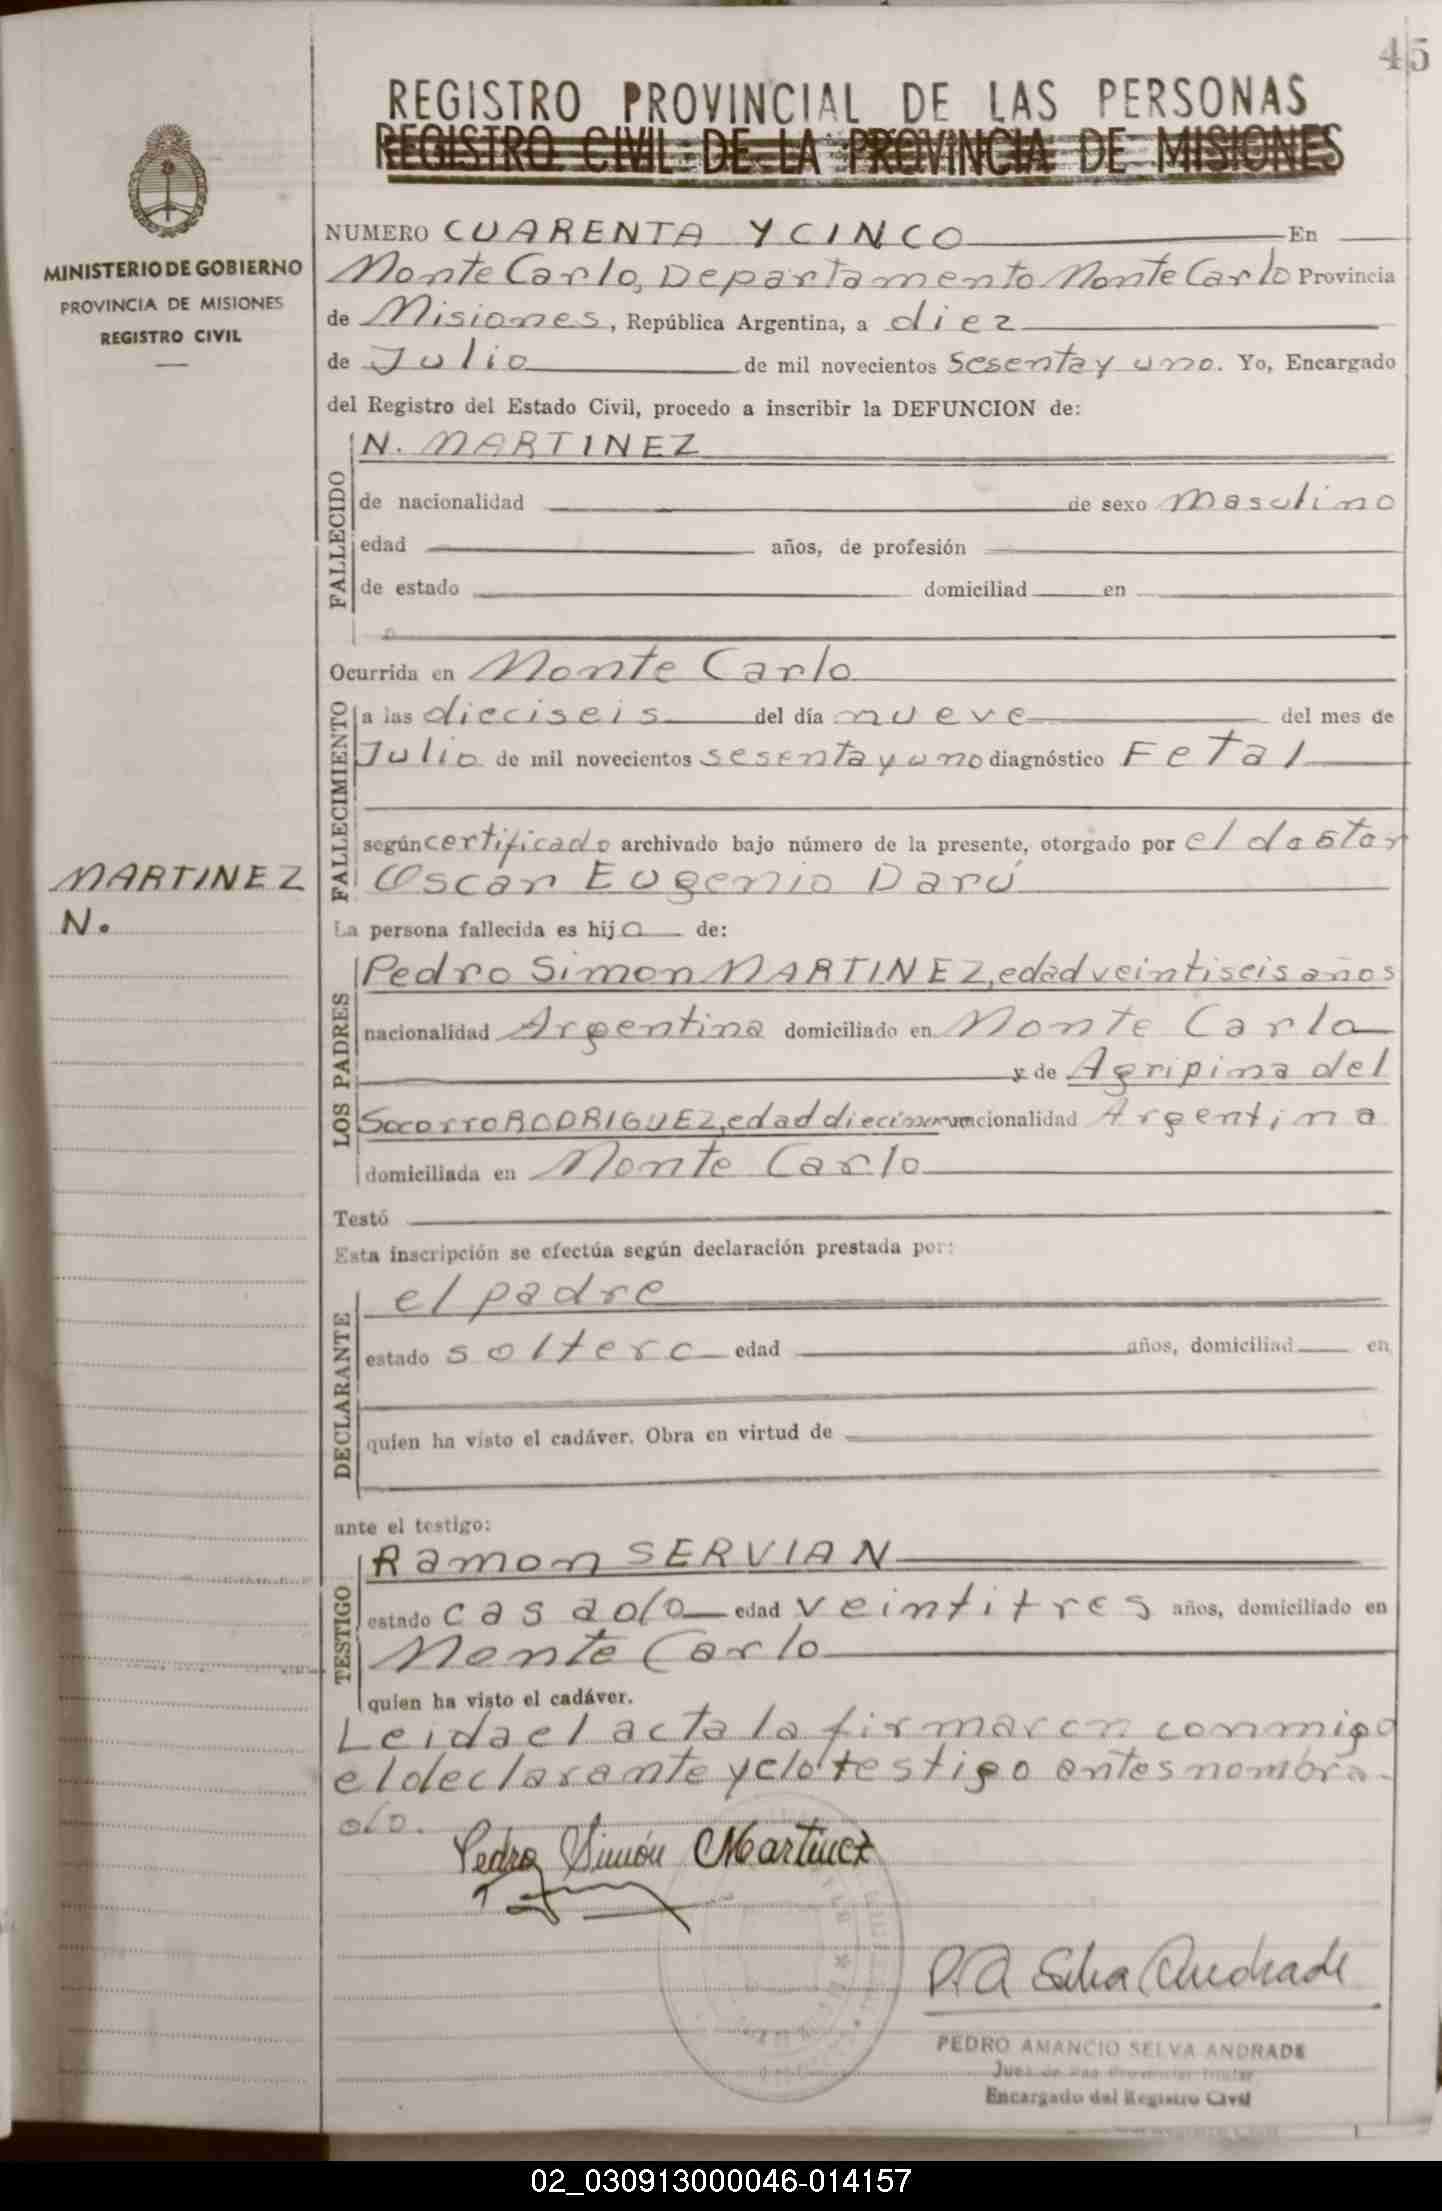 45
REGISTRO PROVINCIAL DE LAS PERSONAS
REGISTRO CIVIL DE LA PROVINCIA DE MISIONES
MINISTERIO DE GOBIERNO
PROVINCIA DE MISIONES
REGISTRO CIVIL
NUMERO CUARENTA Y CINCO En
Monte Carlo, Departamento Monte Carlo Provincia
de Misiones, República Argentina, a diez
de Julio de mil novecientos sesenta y uno. Yo, Encargado
del Registro del Estado Civil, procedo a inscribir la DEFUNCION de:
FALLECIDO
N. MARTINEZ
de nacionalidad de sexo masculino
edad años, de profesión
de estado domiciliad en
Ocurrida en Monte Carlo
FALLECIMIENTO
a las dieciseis del día nueve del mes de
Julio de mil novecientos sesenta y uno diagnóstico Fetal
según certificado archivado bajo número de la presente, otorgado por el doctor
Oscar Eugenio Darú
MARTINEZ
N.
La persona fallecida es hijo de:
LOS PADRES
Pedro Simon MARTINEZ, edad veintiseis años
nacionalidad Argentina domiciliado en Monte Carlo
y de Agripina del
Socorro RODRIGUEZ, edad diecinueve nacionalidad Argentina
domiciliada en Monte Carlo
Testó
Esta inscripción se efectúa según declaración prestada por:
DECLARANTE
el padre
estado soltero edad años, domiciliad en
quien ha visto el cadáver. Obra en virtud de
ante el testigo:
TESTIGO
Ramon SERVIAN
estado casado edad veintitres años, domiciliado en
Monte Carlo
quien ha visto el cadáver.
Leida el acta la firmaron conmigo
el declarante y el testigo antes nombra-
do.
Pedro Simón Martinez
P. A. Selva Andrade
PEDRO AMANCIO SELVA ANDRADE
Juez de Paz Provincial Titular
Encargado del Registro Civil
02_030913000046-014157